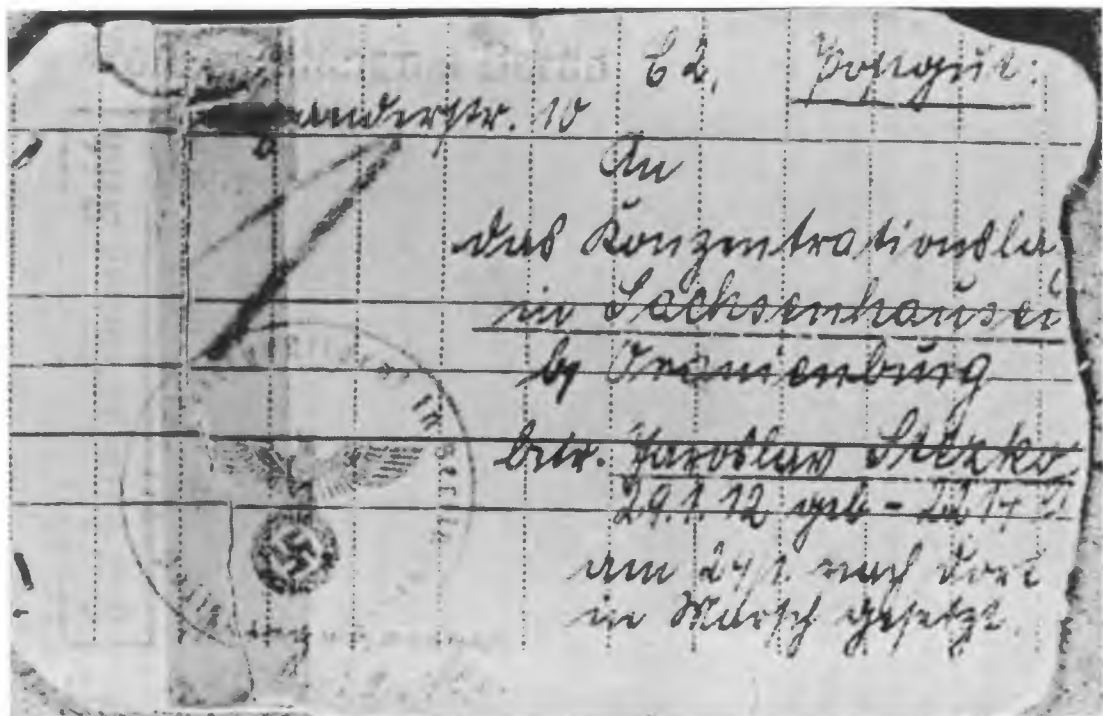 C 2.
anderstr. 10
An
das Konzentrationsla
in Sachsenhausen
b/ Oranienburg
betr. Jaroslav Stezko,
geb -
am nach dort
in Marsch gesetzt.